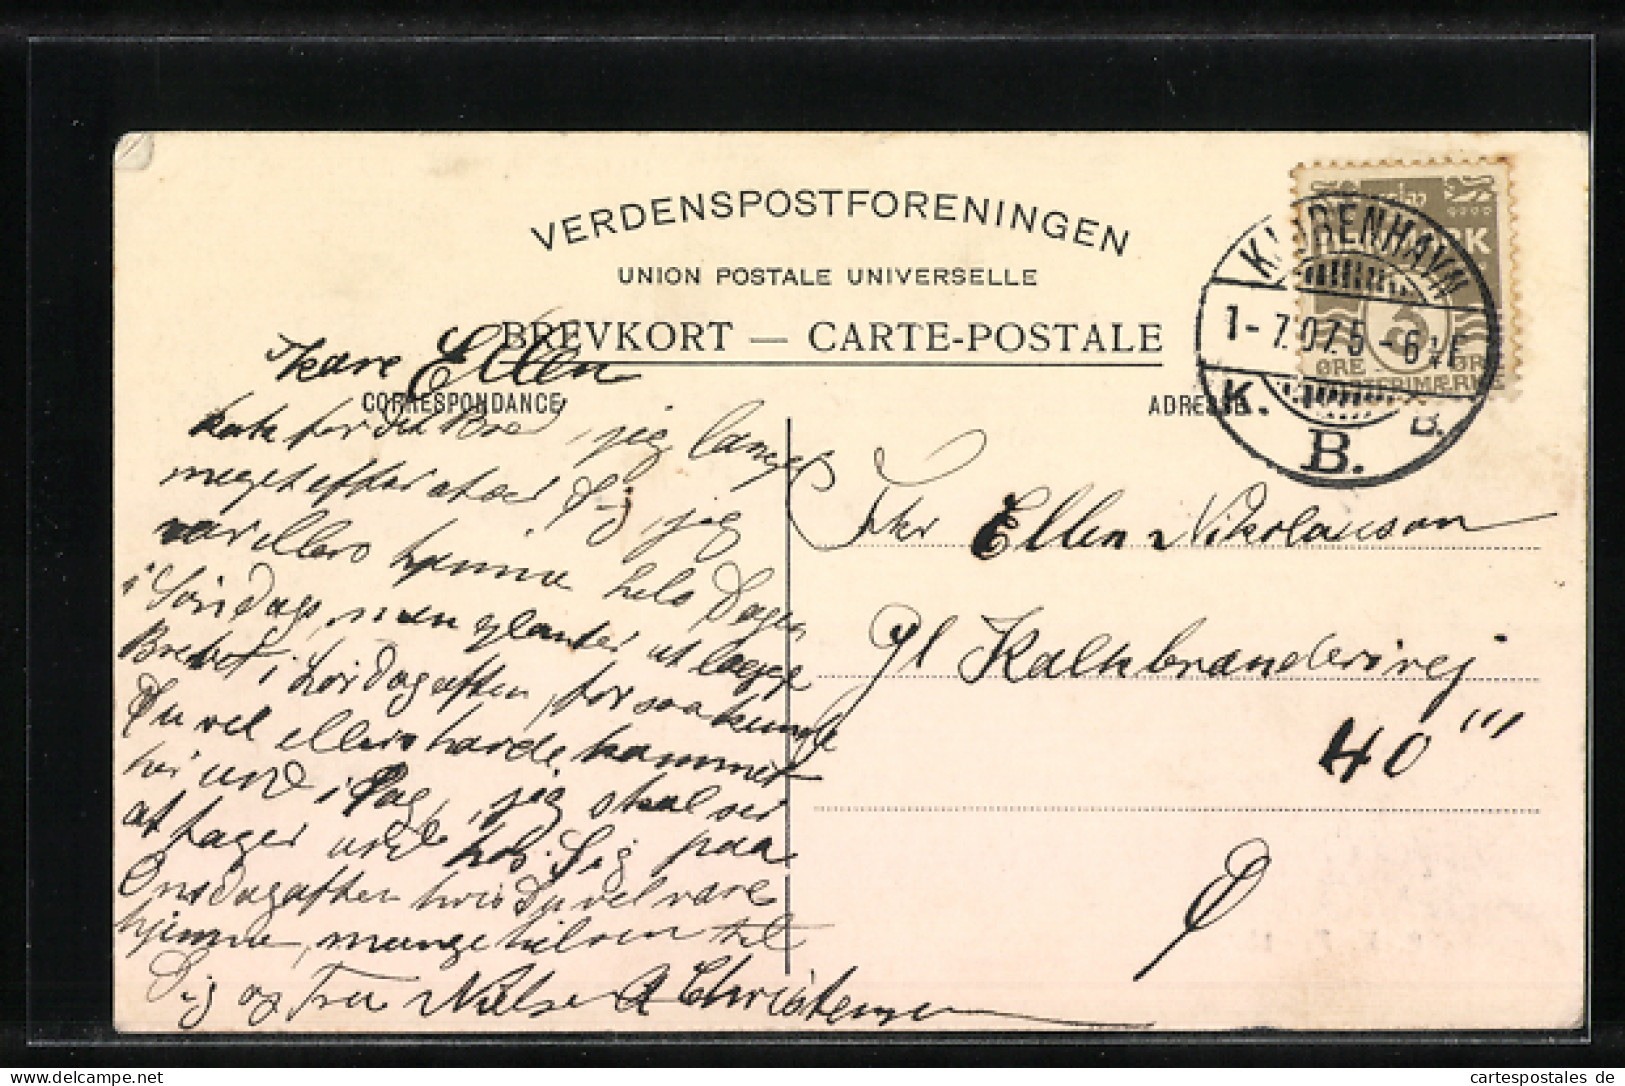 VERDENSPOSTFORENINGEN
UNION POSTALE UNIVERSELLE
BREVKORT — CARTE-POSTALE
CORRESPONDANCE
ADRESSE
KJØBENHAVN
1-7.07.5-6½F
K. B. B.
ØRE ØRE
Kære Ellen
Tak for dit Bre, jeg længes
meget efter at se Dig, jeg
var ellers hjemme hele Dagen
i Søndags, men glemte at lægge
Brevet i Lørdagaften, for saa kunde
Du vel ellers havde kommet
ud i Dag, jeg skal se
at tager ud hos Dig paa
Onsdagaften hvis Du vel være
hjemme, mange hilsen til
Dig og Fru Nielsen A Christensen
Frk Ellen Nikolausen
Gl Kalkbrænderivej
40'''
Ø
Delcampe.net
cartespostales de